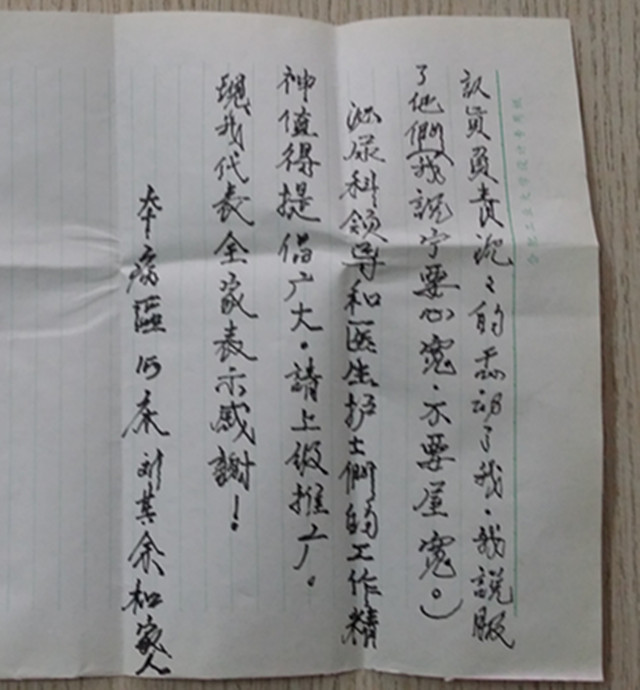 认真负责说之的感动了我．我說服
了他們（我說宁要心寬．不要屋寬。）
泌尿科领导和医生护士們的工作精
神值得提倡广大．請上级推广。
現我代表全家表示感謝！
本病區 床 刘其余和家人